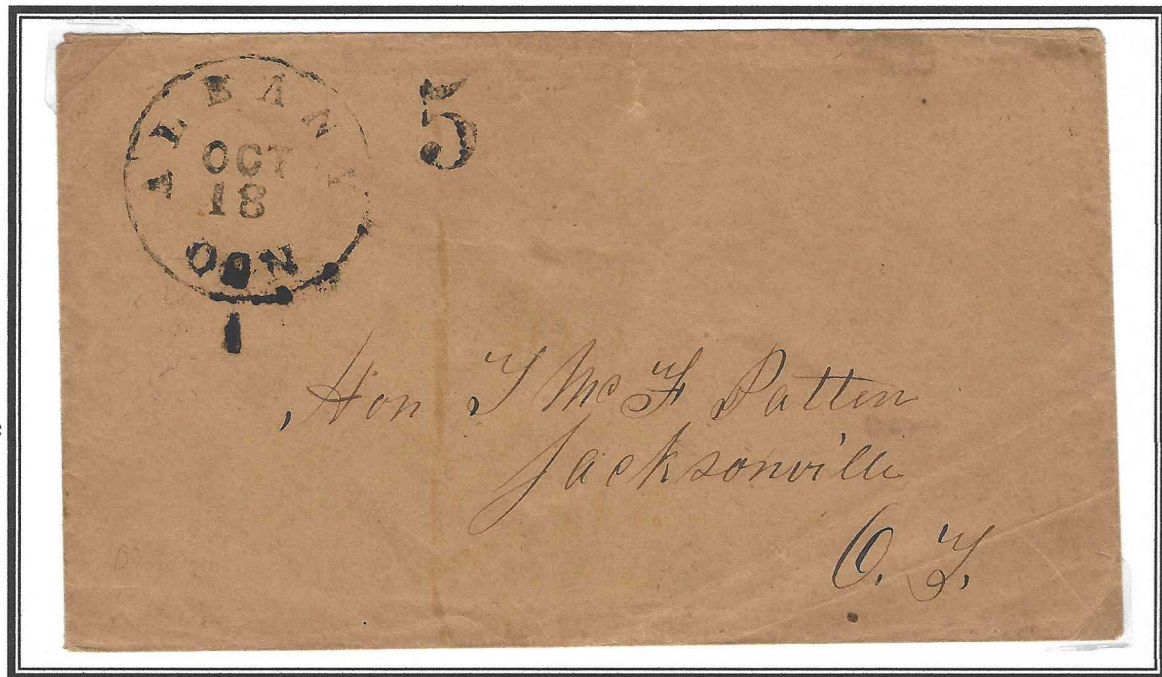 ALBANY
OCT
18
OGN
5
Hon T McF Patten
Jacksonville
O. T.